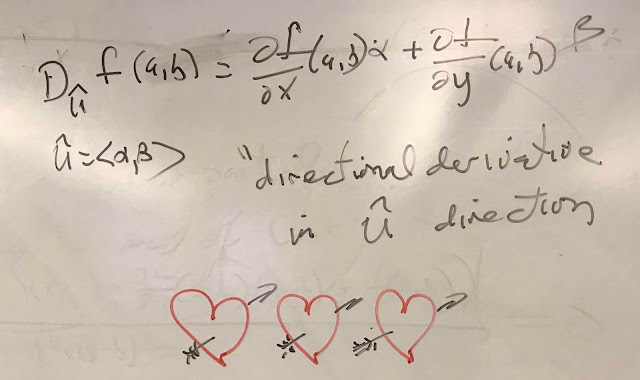 D_û f(a,b) = ∂f/∂x (a,b) α + ∂f/∂y (a,b) β
û = <α,β> "directional derivative
in û direction